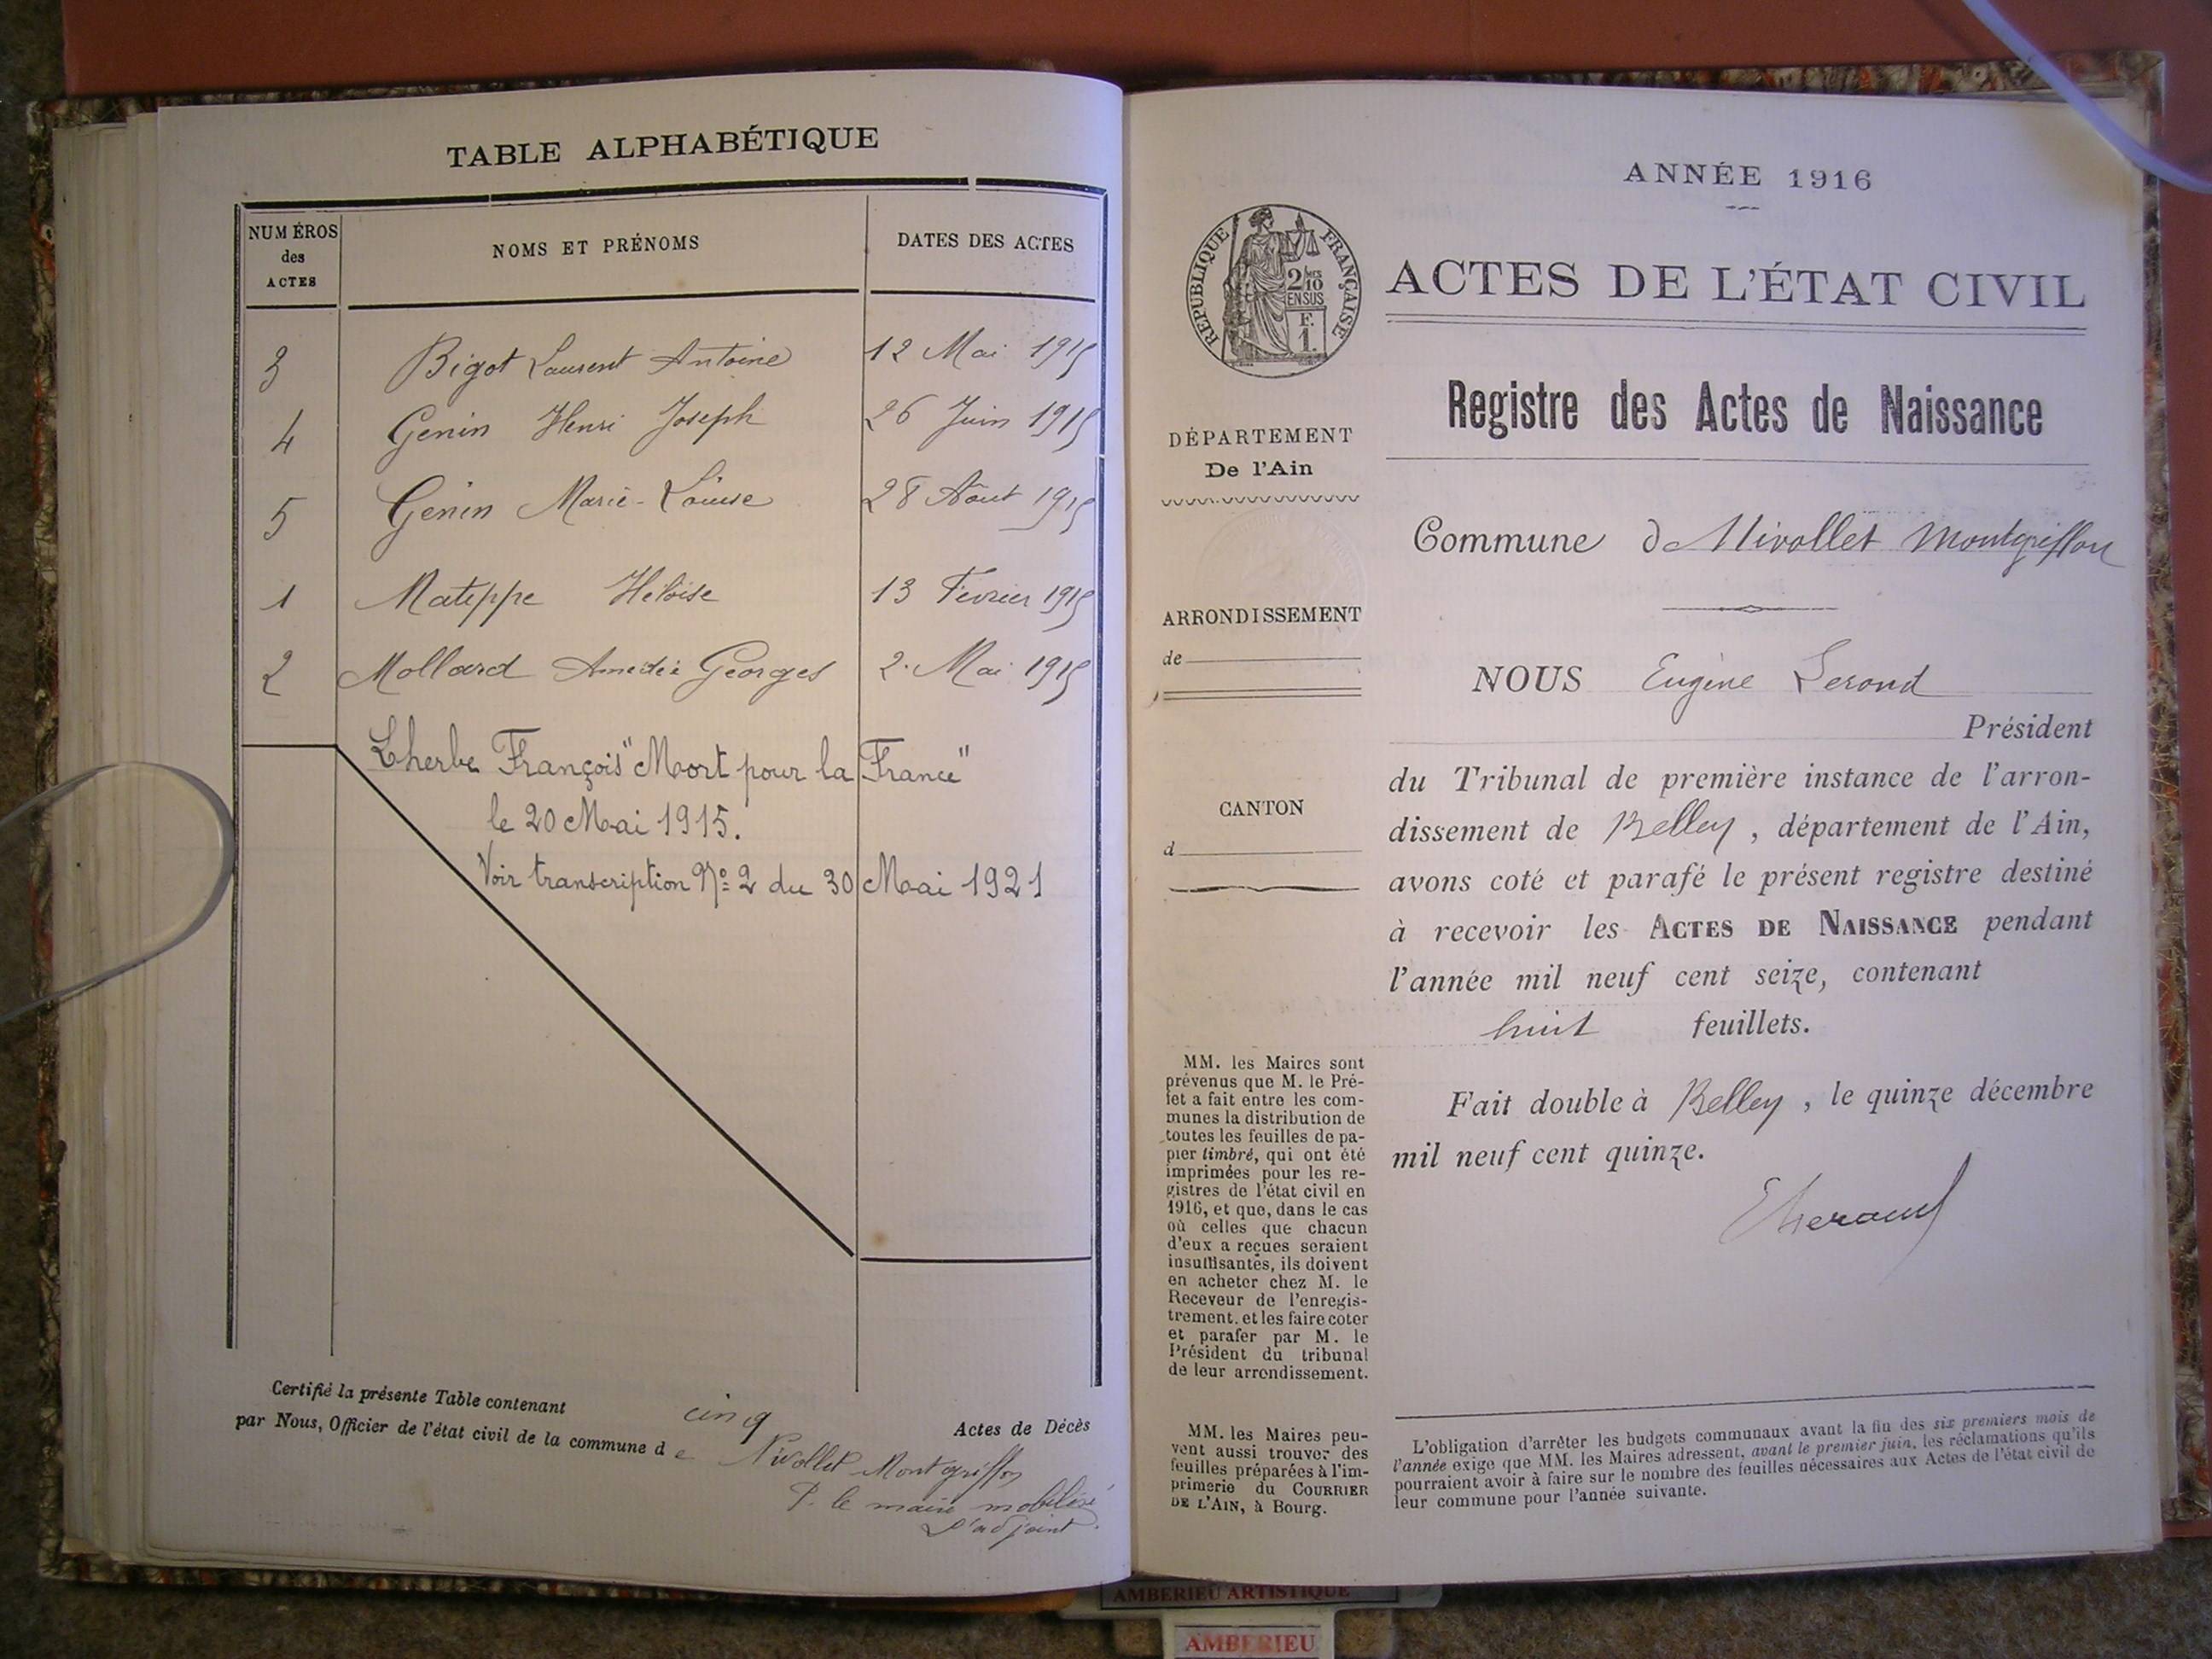 TABLE ALPHABÉTIQUE
NUMÉROS
des
ACTES
NOMS ET PRÉNOMS
DATES DES ACTES
3 Bigot Laurent Antoine 12 Mai 1915
4 Genin Henri Joseph 26 Juin 1915
5 Génin Marie-Louise 28 Août 1915
1 Mateppe Héloïse 13 Février 1915
2 Mollard Amédée Georges 2 Mai 1915
Lherbe François "Mort pour la France"
le 20 Mai 1915.
Voir transcription No 2 du 30 Mai 1921
Certifié la présente Table contenant cinq Actes de Décès
par Nous, Officier de l'état civil de la commune de Nivollet-Montgriffon
P. le maire mobilisé
L'adjoint.
ANNÉE 1916
RÉPUBLIQUE FRANÇAISE
2/10 MES
EN SUS
F.
1.
ACTES DE L'ÉTAT CIVIL
Registre des Actes de Naissance
DÉPARTEMENT
De l'Ain
Commune de Nivollet Montgriffon
ARRONDISSEMENT
de
CANTON
d
NOUS Eugène Lerond
Président
du Tribunal de première instance de l'arron-
dissement de Belley, département de l'Ain,
avons coté et parafé le présent registre destiné
à recevoir les ACTES DE NAISSANCE pendant
l'année mil neuf cent seize, contenant
huit feuillets.
Fait double à Belley, le quinze décembre
mil neuf cent quinze.
MM. les Maires sont
prévenus que M. le Pré-
fet a fait entre les com-
munes la distribution de
toutes les feuilles de pa-
pier timbré, qui ont été
imprimées pour les re-
gistres de l'état civil en
1916, et que, dans le cas
où celles que chacun
d'eux a reçues seraient
insuffisantes, ils doivent
en acheter chez M. le
Receveur de l'enregis-
trement, et les faire coter
et parafer par M. le
Président du tribunal
de leur arrondissement.
MM. les Maires peu-
vent aussi trouver des
feuilles préparées à l'im-
primerie du COURRIER
DE L'AIN, à Bourg.
L'obligation d'arrêter les budgets communaux avant la fin des six premiers mois de
l'année exige que MM. les Maires adressent, avant le premier juin, les réclamations qu'ils
pourraient avoir à faire sur le nombre des feuilles nécessaires aux Actes de l'état civil de
leur commune pour l'année suivante.
AMBERIEU ARTISTIQUE
AMBERIEU